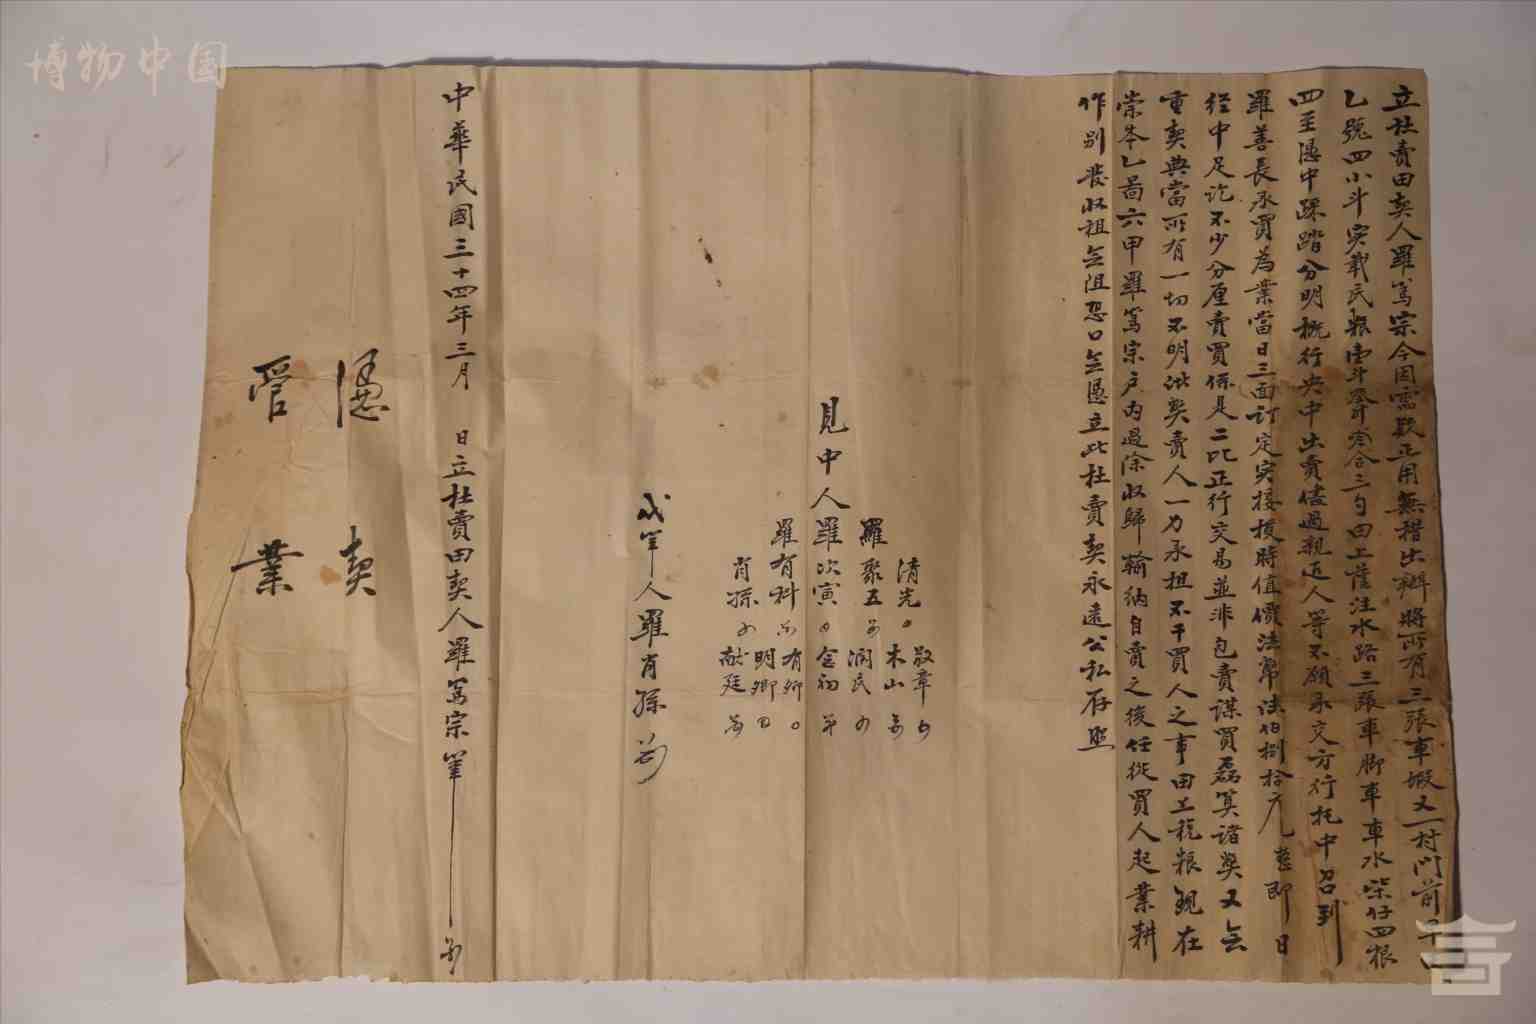 立杜賣田契人羅篤宗今因需款正用無措出辦將所有三張車塅又一村門前早田
乙號四小斗実載民粮壹斗合三勺田上蔭注水路三張車脚車車水柴仔四根
四至憑中踩踏分明概行央中出賣儘過親近人等不願承交方行托中召到
羅善長承買為業當日三面訂定实接授時值價法幣法佰捌拾元整即日
经中足訖不少分厘賣買係是二比正行交易並非包賣謀買磊算諸獘又無
重契典當所有一切不明此契賣人一力承担不干買人之事田上糧现在
崇本乙啚六甲羅篤宗户内過除收歸輸納自賣之後任從買人起業耕
作别發收租無阻恐口無憑立此杜賣契永遠公私存照
敬章
清光 木山
羅聚五 潤民
見中人羅次寅 金初
羅有科 有卿
明卿
肖孫 献廷
代筆人羅肖孫
中華民國三十四年三月 日立杜賣田契人羅篤宗筆
憑契
管業
博物中国